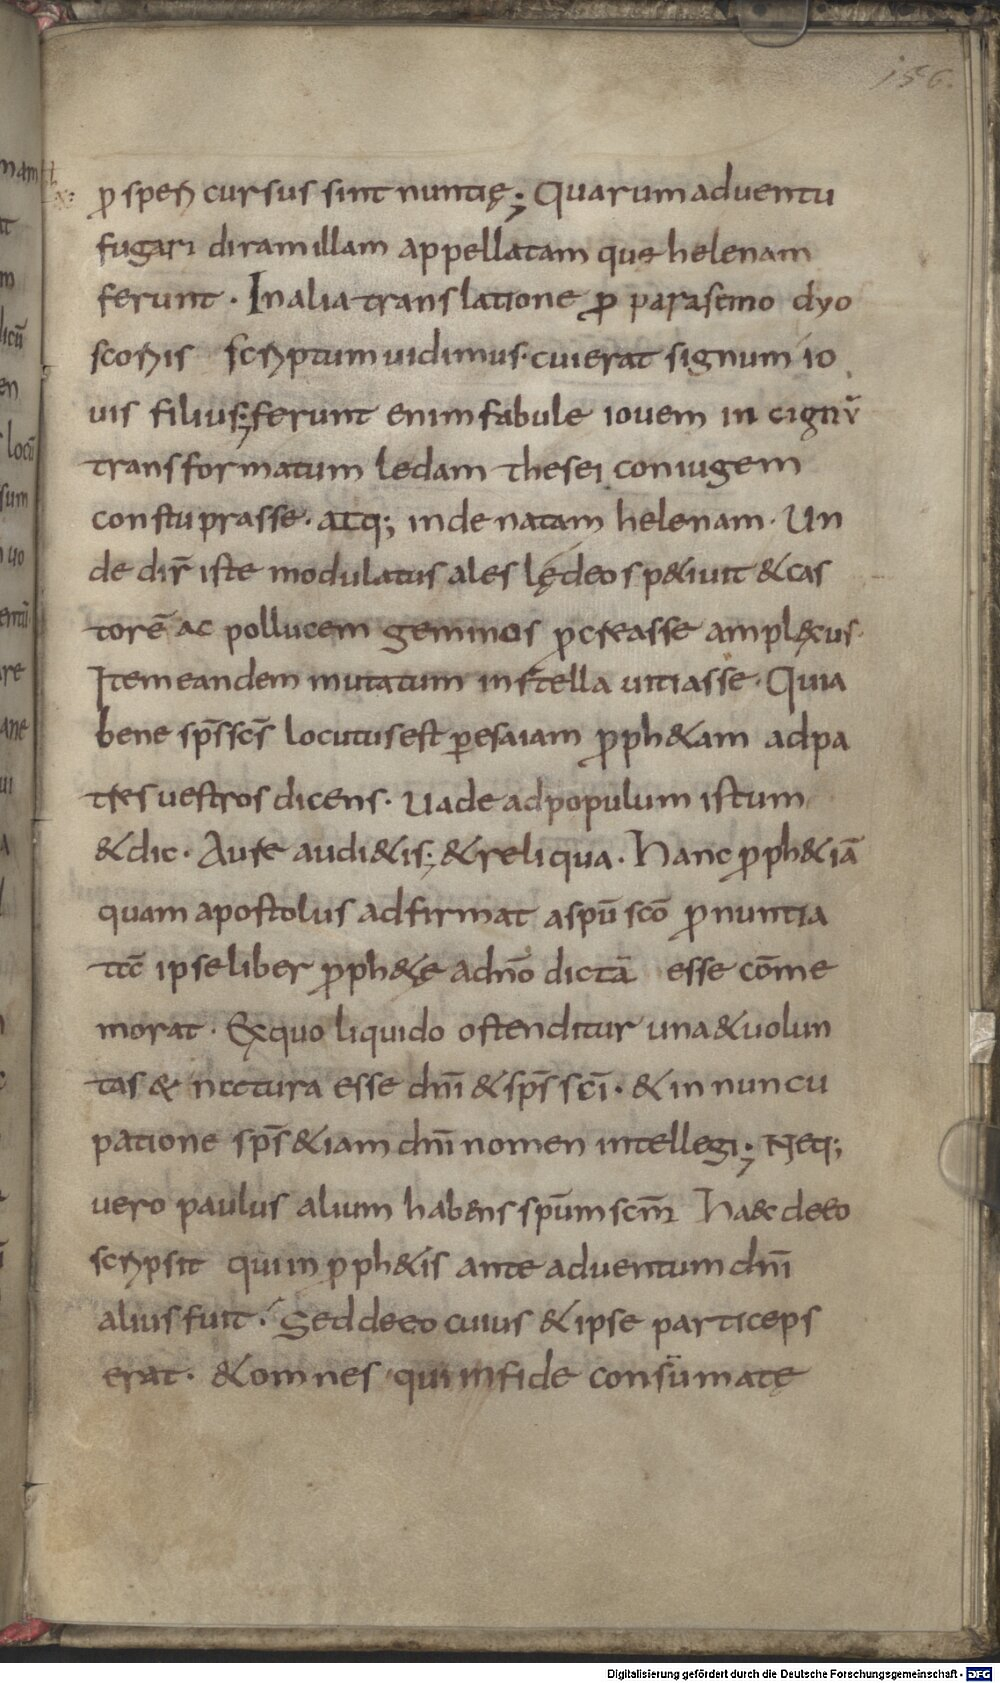 156.
ꝓsperi cursus sint nuntię; Quarum adventu
fugari diram illam appellatam que helenam
ferunt · In alia translatione ꝓ parasemo dyo
scoris scriptum uidimus · cui erat signum io
uis filius; ferunt enim fabule iouem in cignū
transformatum ledam thesei coniugem
constuprasse · atq; inde natam helenam · Un
de dir̄ iste modulatus ales lędeos p&iuit & cas
torē ac pollucem geminos ꝓcreasse amplęxus ·
Item eandem mutatum in stella uitiasse · Quia
bene sp̄s sc̄s locutus est ꝑ esaiam ꝓph&am ad pa
tres uestros dicens · Uade ad populum istum
& dic · Aure audi&is; & reliqua · Hanc ꝓph&iā
quam apostolus adfirmat a spū scō ꝓnuntia
tā ipse liber ꝓph&ę a dn̄o dictā esse cōme
morat · Ex quo liquido ostenditur una & uolun
tas & natura esse dn̄i & sp̄s sc̄i · & in nuncu
patione sp̄s &iam dn̄i nomen intellegi; Neq;
vero paulus alium habens sp̄um sc̄m Haec de eo
scripsit qui in ꝓph&is ante adventum dn̄i
alius fuit · Sed de eo cuius & ipse particeps
erat · & omnes qui in fide consūmatę
Digitalisierung gefördert durch die Deutsche Forschungsgemeinschaft - DFG